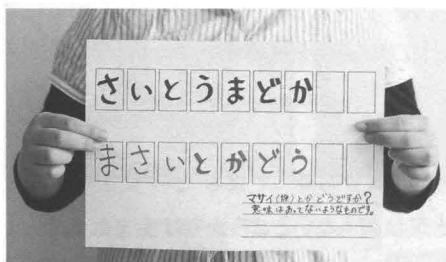 さいとうまどか
まさいとかどう
マサイ(族)とかどうですか?
意味はあってないようなものです。